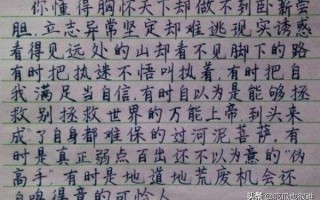 你懂得胸怀天下却做不到卧薪尝
胆,立志异常坚定却难逃现实诱惑
看得见远处的山却看不见脚下的路
有时把执迷不悟叫执着,有时把自
我满足当自信,有时自以为是能够拯
救别拯救世界的万能上帝,到头来
成了自身都难保的过河泥菩萨,有
时是真正弱点百出还不以为意的“伪
高手”,有时是地道地荒废机会还
自鸣得意的可怜人